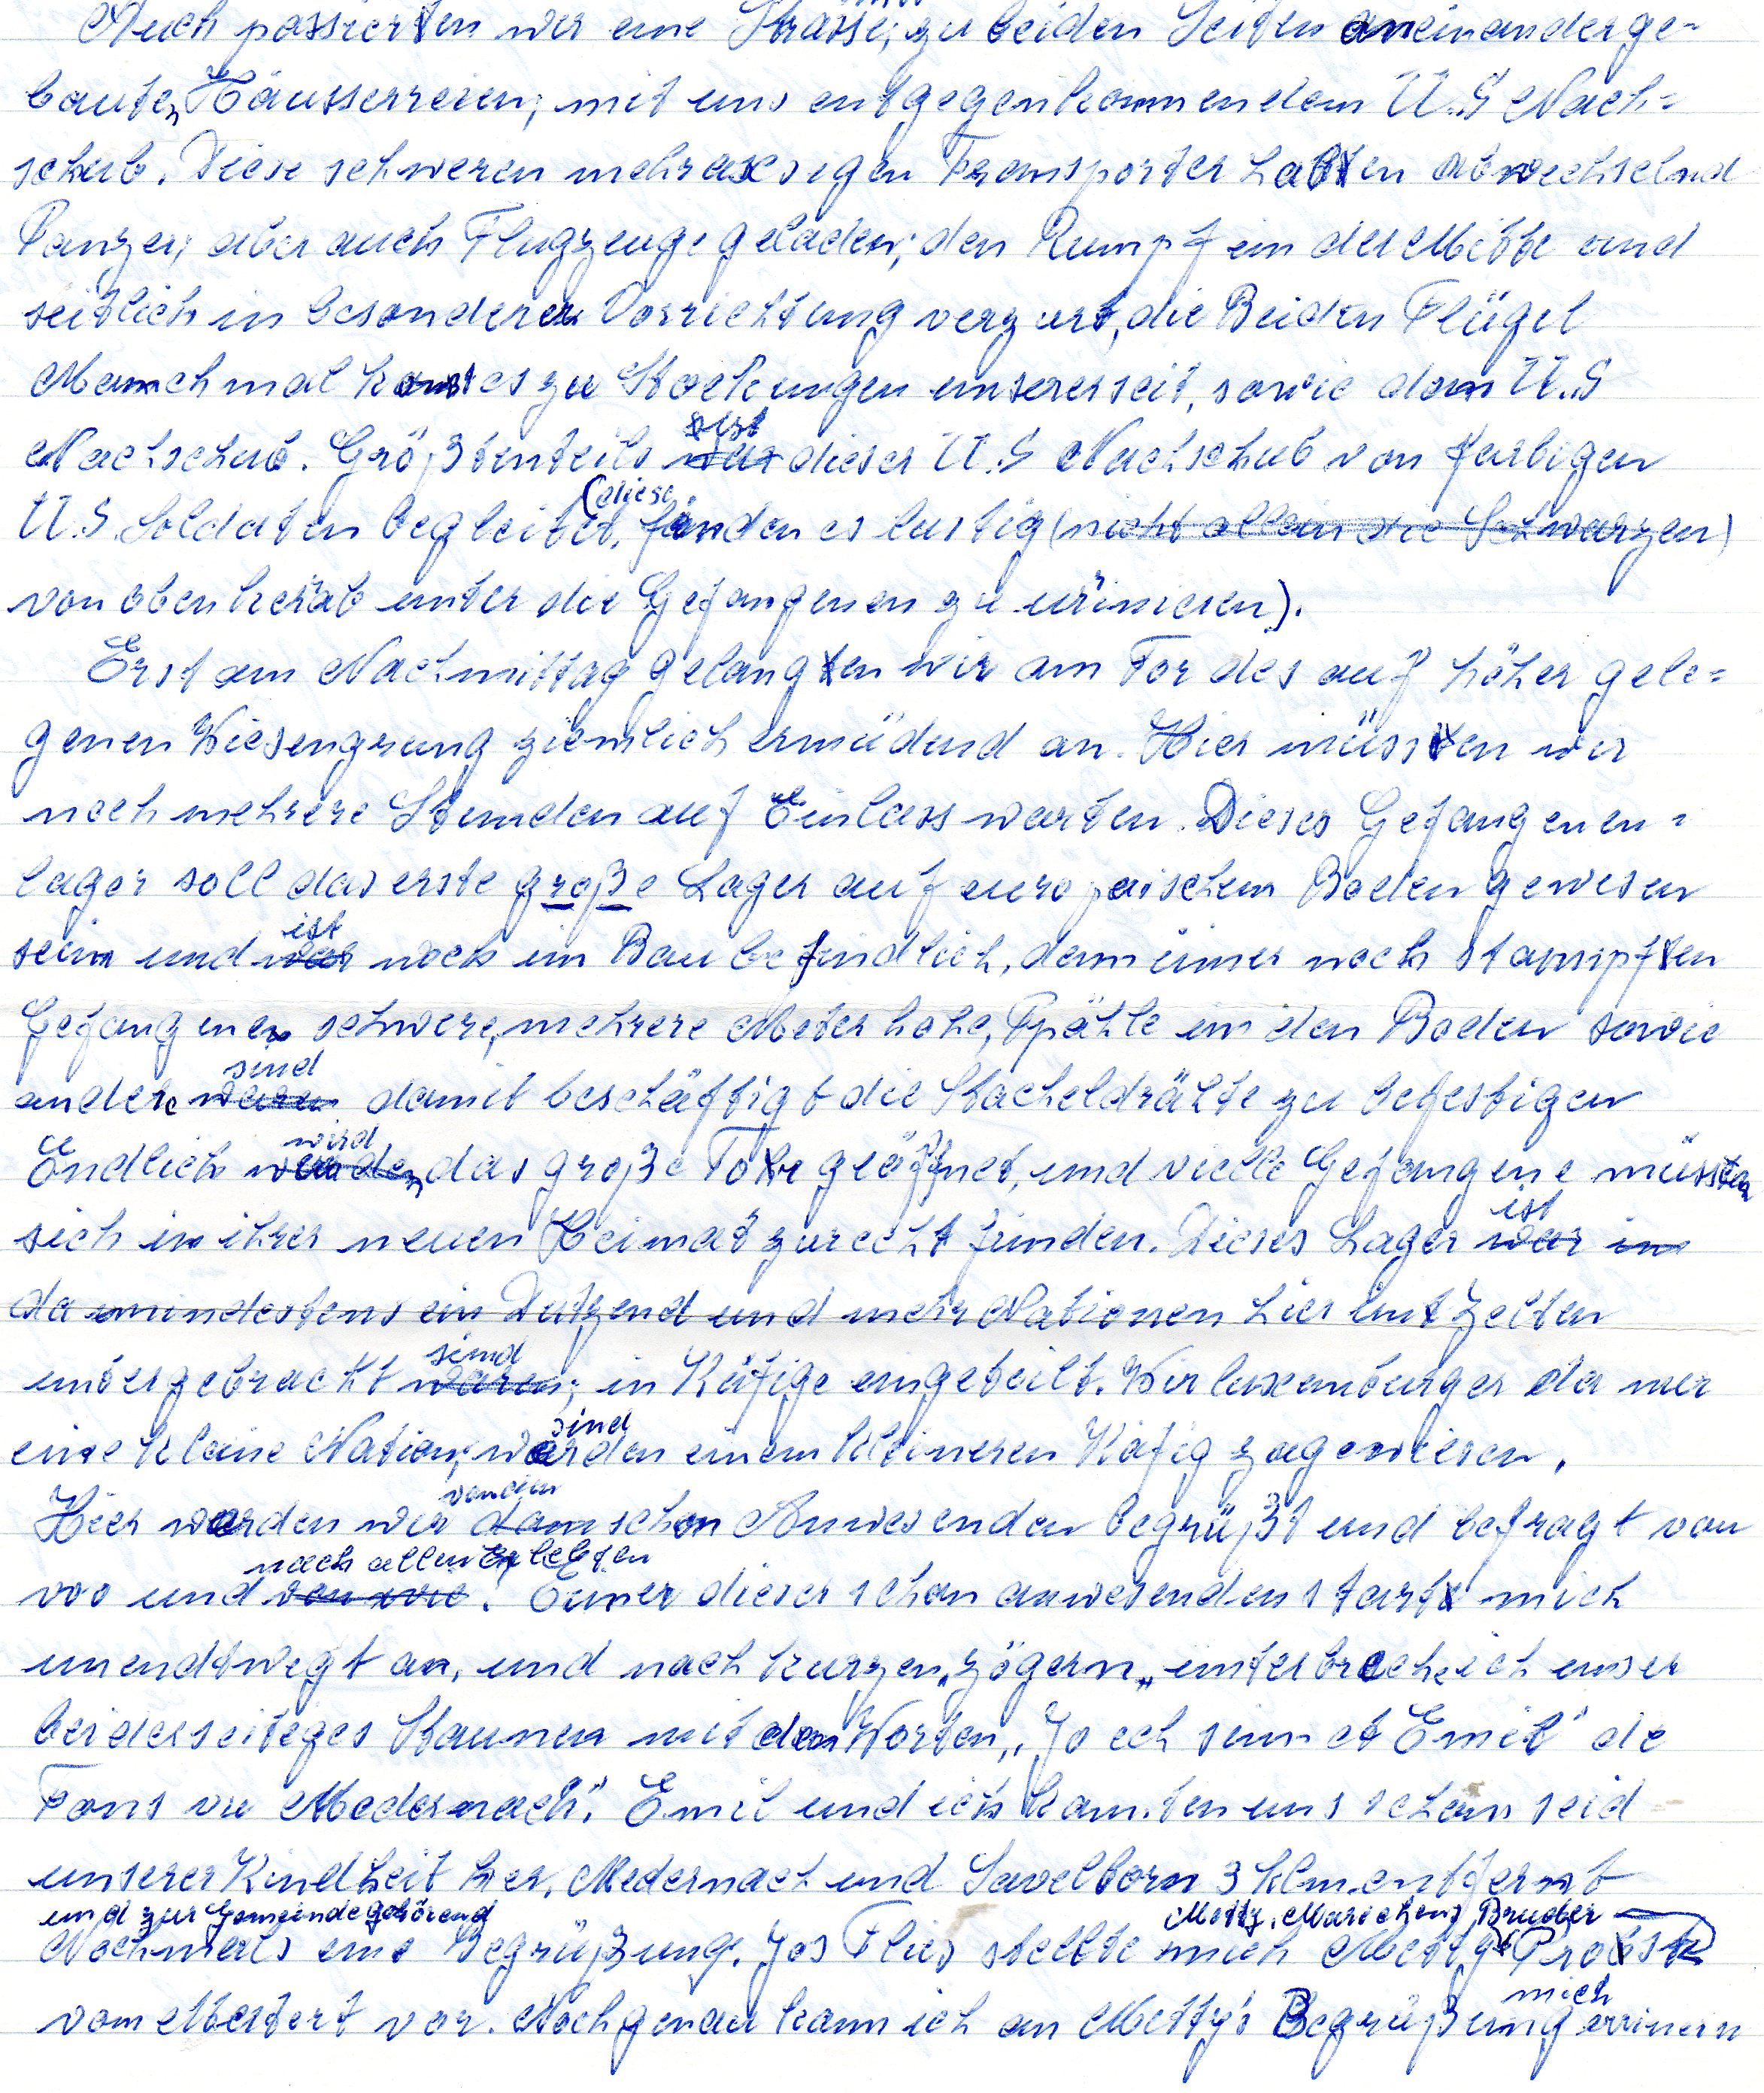 Auch passierten wir eine Strasse, zu beiden Seiten aneinanderge-
bauten Häusserreien, mit uns entgegenkommendem U.S Nach-
schub. Diese schweren mehraxsigen Transporter hatten abwechselnd
Panzer, aber auch Flugzeuge geladen, den Rumpf in der Mitte und
seitlich in besonderer Vorrichtung verzurt, die Beiden Flügel
Manchmal kommt es zu Stockungen unsererseit, sowie dem U.S
Nachschub. Größtenteils ist dieser U.S Nachschub von farbigen
U.S. Soldaten begleitet, (diese fanden es lustig (nicht allein die Schwarzen)
von oben herab unter die Gefangenen zu urinieren).
Erst am Nachmittag gelangten wir am Tor des auf höher gele-
genen Wiesengrung ziemlich ermüdend an. Hier müssen wir
noch mehrere Stunden auf Einlass warten. Dieses Gefangenen-
lager soll das erste große Lager auf europaischem Boden gewesen
sein und ist noch im Bau befindlich, denn immer noch stampfen
Gefangene schwere, mehrere Meter hohe, Pfähle in den Boden sowie
andere sind damit beschäftigt die Stacheldrähte zu befestigen
Endlich wird das große Tor geöffnet, und vielle Gefangene müssen
sich in ihrer neuen Heimat zurecht finden. Dieses Lager ist war in
da mindestens ein Dutzend und mehr Nationen hier in Zelten
untergebracht sind, in Käfige eingeteilt. Wir luxemburger da nur
eine kleine Nation, sind einem kleineren Käfig zugewiesen.
Hier werden wir von den schon Anwesenden begrüßt und befragt von
wo und nach allem Erlebten. Einer dieser schon anwesenden start mich
unendtwegt an, und nach kurzen „zögern„ unterbreche ich unser
beiderseitiges Staunen mit den Worten „Jo ech sinn et Emil" de
Fons vu Medernach". Emil und ich kannten uns schon seid
unserer Kindheit her, Medernach und Savelborn 3 klm. entfernt
und zur Gemeinde gehörend
Nochmals eine Begrüßung. Jos Flies stellte mich Metty Probst Metty, Mariechens Bruder
vom Mertert vor. Noch genau kann ich mich an Metty's Begrüßung errinern